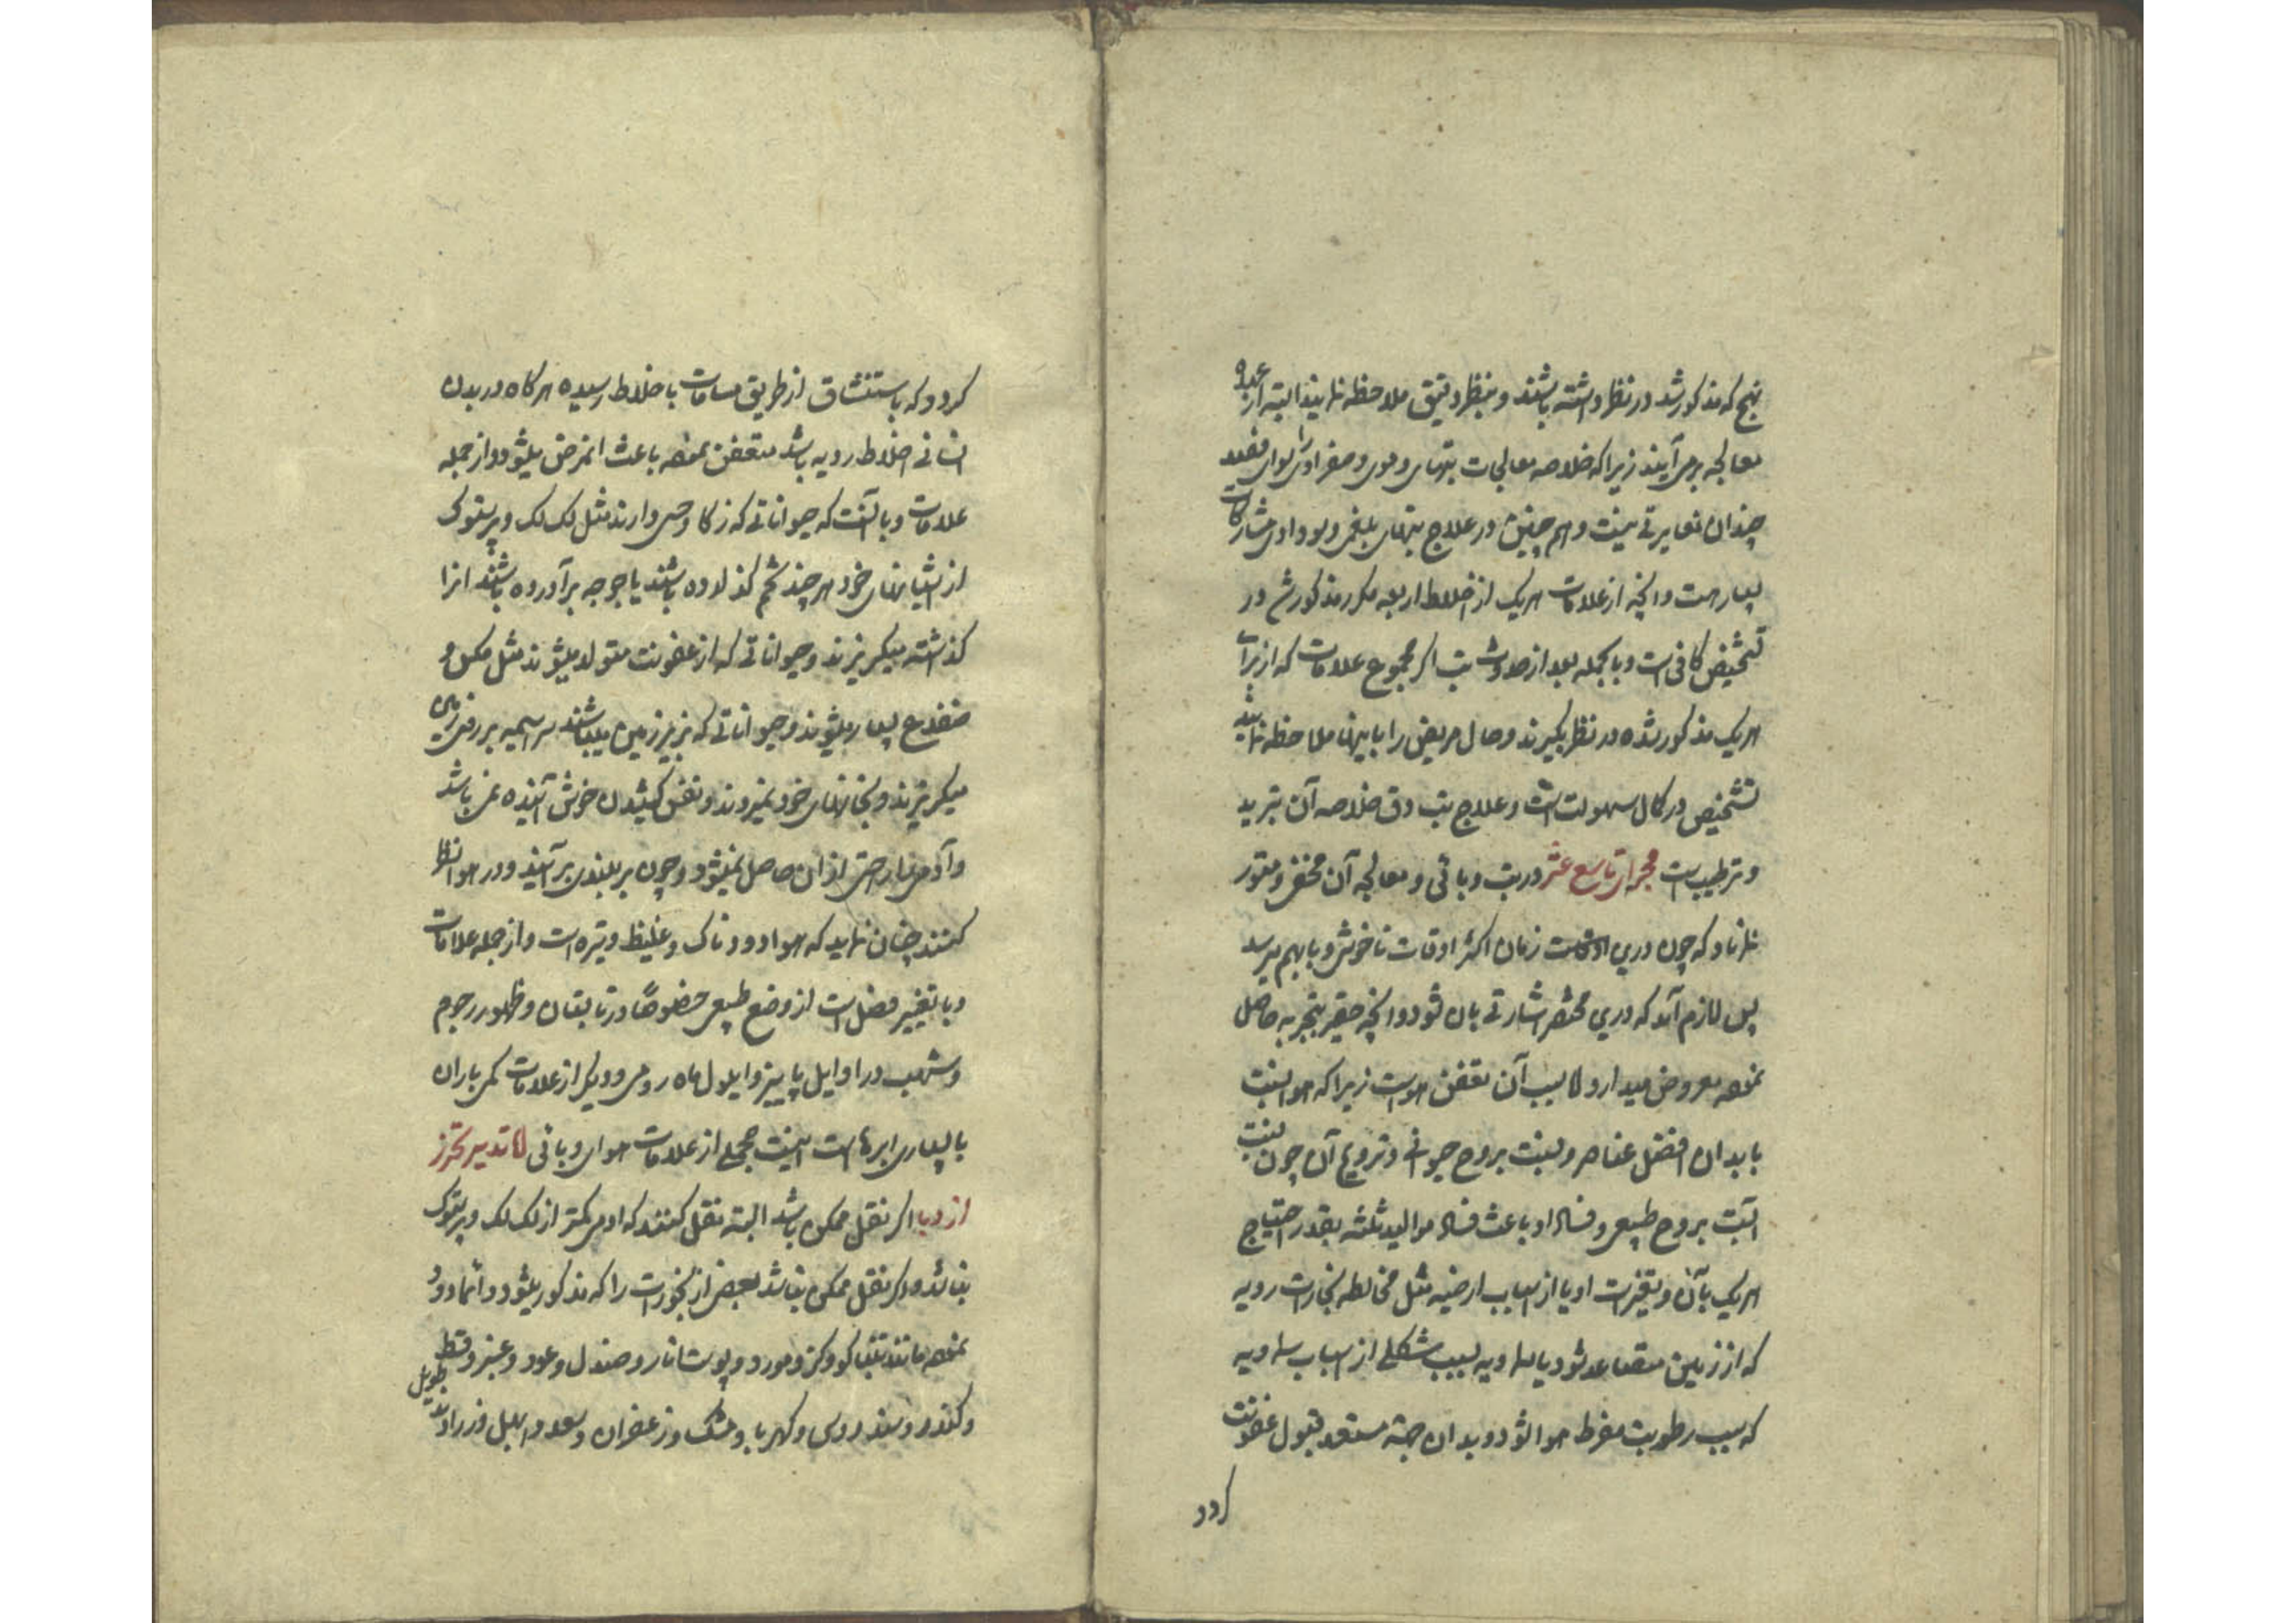 نهج که مذکور شد در نظر داشته باشند و بنظر دقیق ملاحظه نمایند البته از عهده
معالجه برمی‌آیند زیرا که خلاصه معالجات تبهای دموی و صفراوی را سوای فصد
چندان تغایرتی نیست و هم چنین در علاج تبهای بلغمی و سوداوی مشارکات
بسیار هست و آنچه از علامات هریک از اخلاط اربعه مکرر مذکور شد در
تشخیص کافی است و بالجمله بعد از حدوث تب اگر مجموع علامات که از برای
هریک مذکور شده در نظر بگیرند و حال مریض را با اینها ملاحظه نمایند
تشخیص در کمال سهولت است و علاج تب دق خلاصه آن تبرید
و ترطیب است مجرای تاسع عشر در تب وبائی و معالجه آن مخفی و مستور
نماناد که چون درین زمان اکثر اوقات ناخوشی وبا بهم میرسد
پس لازم آمد که درین مختصر اشارتی بان شود و آنچه حقیر بتجربه حاصل
نموده معروض میدارد اما سبب آن تعفن هواست زیرا که هوا نسبت
بابدان افضل عناصر و نسبت بروح حیوانی و ترویح آن چون نسبت
آبست بروح طبیعی و فساد او باعث فساد موالید ثلثه بقدر احتیاج
هریک بآن و تغیرات او یا از اسباب ارضیه مثل مخالطه بخارات ردیه
که از زمین متصاعد شود یا سماویه بسبب شکلی از اسباب سماویه
که سبب رطوبت مفرط هوا شود و بدان جهة مستعد قبول عفونت
گردد
گردد که باستنشاق از طریق مسامات باخلاط رسیده هرگاه در بدن
انسانی اخلاط ردیه باشد متعفن نموده باعث اینمرض میشود و از جمله
علامات وبا آنست که حیواناتی که زکاء حسی دارند مثل لک لک و پرستوک
از آشیانهای خود هر چند تخم گذارده باشند یا جوجه برآورده باشند انرا
گذاشته میگریزند و حیواناتی که از عفونت متولد میشوند مثل مگس و
ضفدع بسیار میشوند و حیواناتی که بزیر زمین میباشند سراسیمه بر روی زمین
میگریزند و بخانهای خود نمیروند و نفس کشیدن خوش آینده نمی باشد
و آدمی را راحتی از آن حاصل نمیشود و چون بر بلندی برآیند و در هوا نظر
کنند چنان نماید که هوا دودناک و غلیظ و تیره است و از جمله علامات
وبا تغییر فصل است از وضع طبیعی خصوصا در تابستان و ظهور رجوم
و شهب در اوایل پاییز و ایلول ماه رومی و دیگر از علامات کمی باران
با بسیاری ابرهاست اینست مجملی از علامات هوای وبائی اما تدبیر تحرز
از وبا اگر نقل ممکن باشد البته نقل کنند که ادمی کمتر از لک لک و پرستوک
نباشد و اگر نقل ممکن نباشد بعضی از بخورات را که مذکور میشود دائما دود
نموده مانند تنباکو و گز و مورد و پوست انار و صندل و عود و عنبر و قسط
و کندر و سندروس و کهربا و مشک و زعفران و سعد و ابهل و زراوند طویل